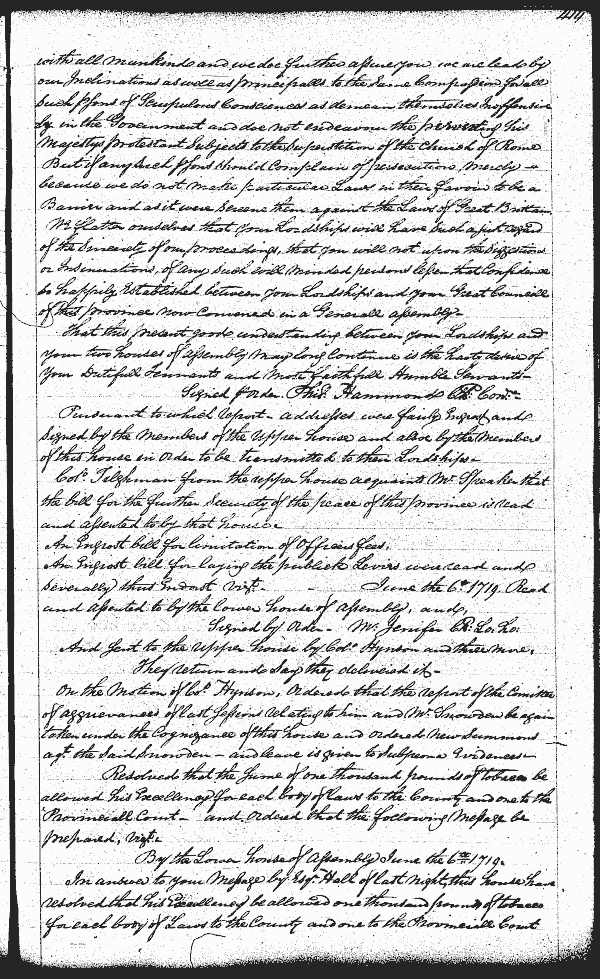 444
with all mankind and we doe further assure you we are leads by
our Inclinations as well as principalls to the Same Compassion for all
Such psons of Scrupulous Consciences as demean themselves Inoffensive
ly in the Government and doe not endeavour the perverting his
Majestys protestant Subjects to the Superstition of the Church of Rome
But if any such psons should Complain of persecution, Merely
because we do not make particular Laws in their favour to be a
Barrier and as it were Screene them against the Laws of Great Brittain
We flatter ourselves that your Lordships will have Such a just regard
of the Sincerity of our proceedings, that you will not upon the Suggestions
or Insinuations, of any such evill minded persons lessen that Confidence
so happily Established between your Lordships and your Great Councill
of this province now Convened in a Generall assembly.
That this present good understanding between your Lordships and
your two houses of assembly may long Continue is the hearty desire of
Your Dutifull Tennants and Most faithfull Humble Servants
Signed p Order Thos. Hammond Clk Com.
Pursuant to which report - addresses were fairly Engrost and
Signed by the Members of the Upper house and alsoe by the Members
of this house in Order to be transmitted to their Lordships.
Colo. Tilghman from the upper house acquaints Mr. Speaker that
the bill for the further Security of the peace of this province is read
and assented to by that house.
An Engrost bill for limitation of Officers fees.
An Engrost bill for laying the publick Levies were read and
Severally thus Endorst vizt. - June the 6th 1719. Read
and assented to by the lower house of assembly, and,
Signed by Order - M. Jenifer Clk. Lo. Ho.
And Sent to the Upper house by Colo. Hynson and three more,
They return and Say they delivered it
On the Motion of Col. Hynson, Ordered that the report of the Comittee
of aggrievances of last Sessions relating to him and Mr. Snowden be again
taken under the Cognizance of this house and ordered new Summons
agt. the Said Snowden - and leave is given to Subpoena Evidences
Resolved that the Sume of one thousand pounds of tobacco be
allowed his Excellency for each body of Laws to the County and one to the
Provinciall Court - and Ordered that the following Message be
prepared, vizt.
By the Lower house of Assembly June the 6th 1719.
In answer to your Message by Esqr. Hall of last night, this house have
resolved that his Excellency be allowed one thousand pounds of tobacco
for each body of Laws to the County and one to the Provinciall Court